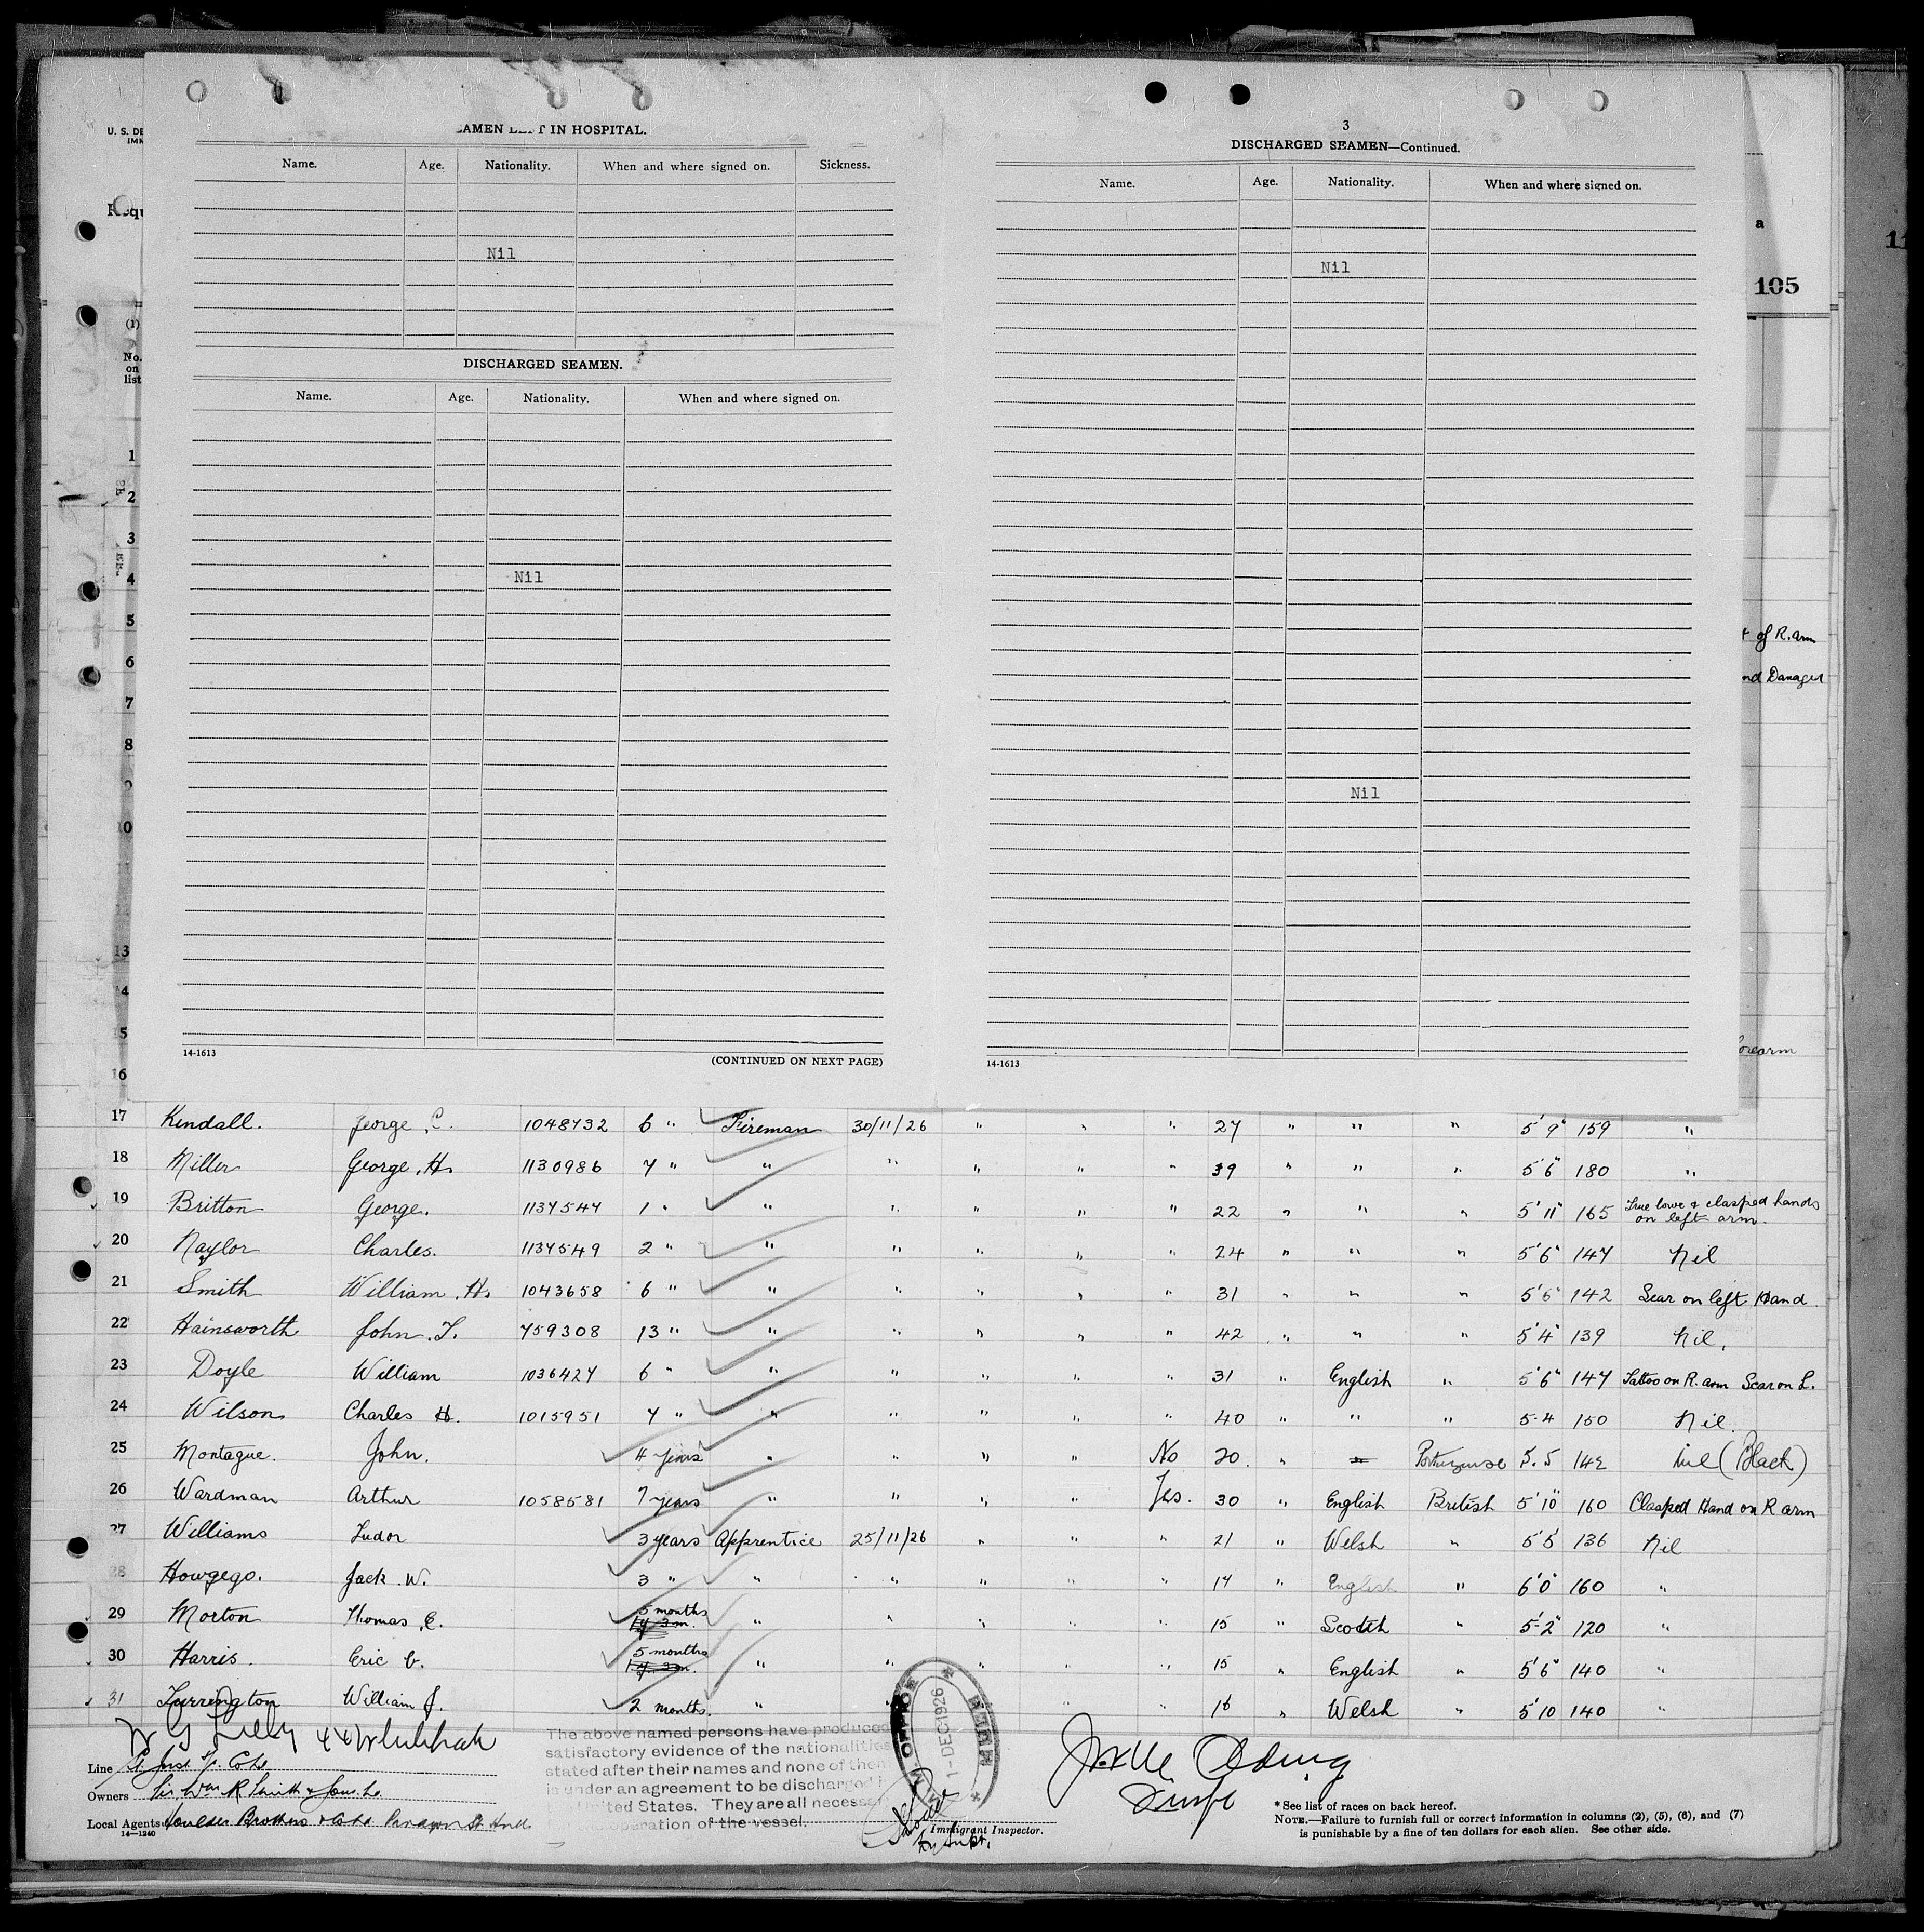 U. S. DE
IMM
AMEN LEFT IN HOSPITAL.
Name. Age. Nationality. When and where signed on. Sickness.
Nil
DISCHARGED SEAMEN.
Name. Age. Nationality. When and where signed on.
Nil
14-1613 (CONTINUED ON NEXT PAGE)
3
DISCHARGED SEAMEN—Continued.
Name. Age. Nationality. When and where signed on.
Nil
Nil
14-1613
Requ
a
11
105
(1)
No.
on
list
1
2
3
4
5
6
7
8
9
10
11
12
13
14
15
16
of R. arm
nd Damaged
orearm
17 Kendall. George C. 1048732 6 " Fireman 30/11/26 " " " 27 " " " 5'9" 159 "
18 Miller George H. 1130986 7 " " " " " " 39 " " " 5'6" 180 "
19 Britton George. 1137547 1 " " " " " " 22 " " " 5'11" 165 True love & clasped hands on left arm.
20 Naylor Charles. 1137549 2 " " " " " " 24 " " " 5'6" 147 Nil
21 Smith William H. 1043658 6 " " " " " " 31 " " " 5'6" 142 Scar on left Hand.
22 Hainsworth John T. 759308 13 " " " " " " 42 " " " 5'4" 139 Nil.
23 Doyle William 1036427 6 " " " " " " 31 " English " 5'6" 147 Tattoo on R. arm Scar on L.
24 Wilson Charles H. 1015951 7 " " " " " " 40 " " " 5-4 150 Nil.
25 Montague. John. 4 years " " " " No 20. " Portuguese 5.5 142 Nil (Black)
26 Wardman Arthur 1058581 7 years " " " " Yes. 30 " English British 5'10" 160 Clasped Hand on R arm
27 Williams Tudor 3 years Apprentice 25/11/26 " " " 21 " Welsh " 5'5 136 Nil
28 Howgego. Jack W. 3 " " " " " " 17 " English " 6'0" 160 "
29 Morton Thomas E. 5 months " " " " " 15 " Scotch " 5-2" 120 "
30 Harris. Eric 5 months " " " " " 15 " English " 5'6" 140 "
31 Turrington William J. 2 months. " " " " 16 " Welsh " 5'10 140 "
The above named persons have produced
satisfactory evidence of the nationalities
stated after their names and none of them
is under an agreement to be discharged
United States. They are all necessary
operation of the vessel.
M. OFFICE
1-DEC 1926
HULL
Line
Owners Sir Wm R Smith & Sons Ld
Local Agents Houlder Brothers & Co Ld Paragon St Hull
14-1240
Immigrant Inspector.
*See list of races on back hereof.
NOTE.—Failure to furnish full or correct information in columns (2), (5), (6), and (7)
is punishable by a fine of ten dollars for each alien. See other side.